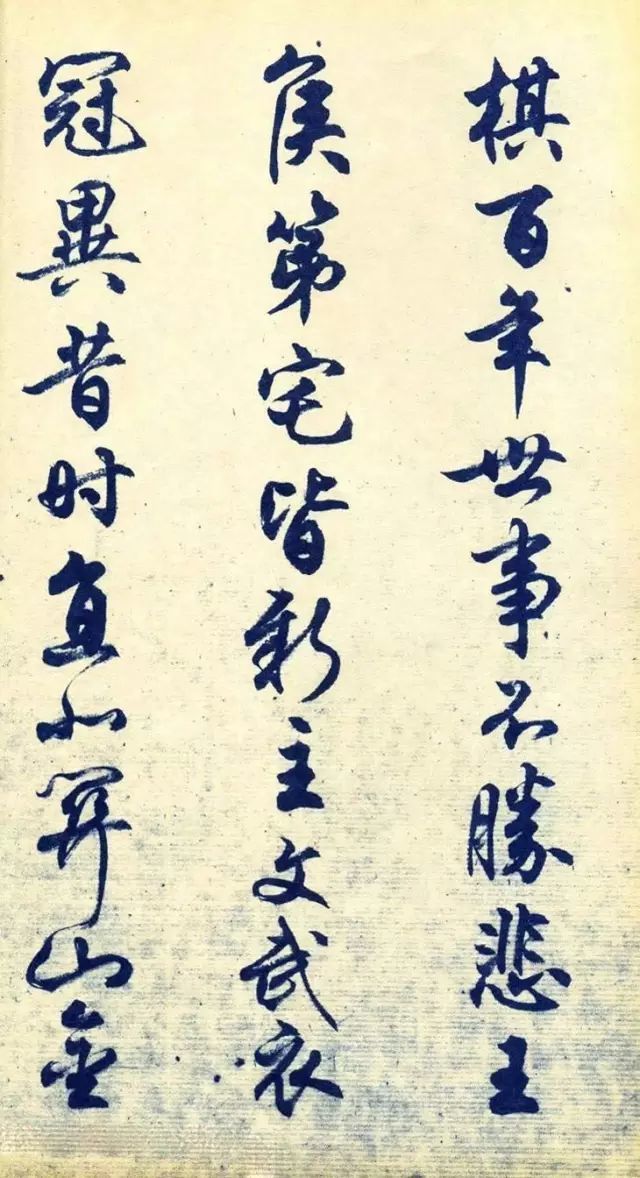 棋百年世事不勝悲王
侯第宅皆新主文武衣
冠異昔时直北關山金